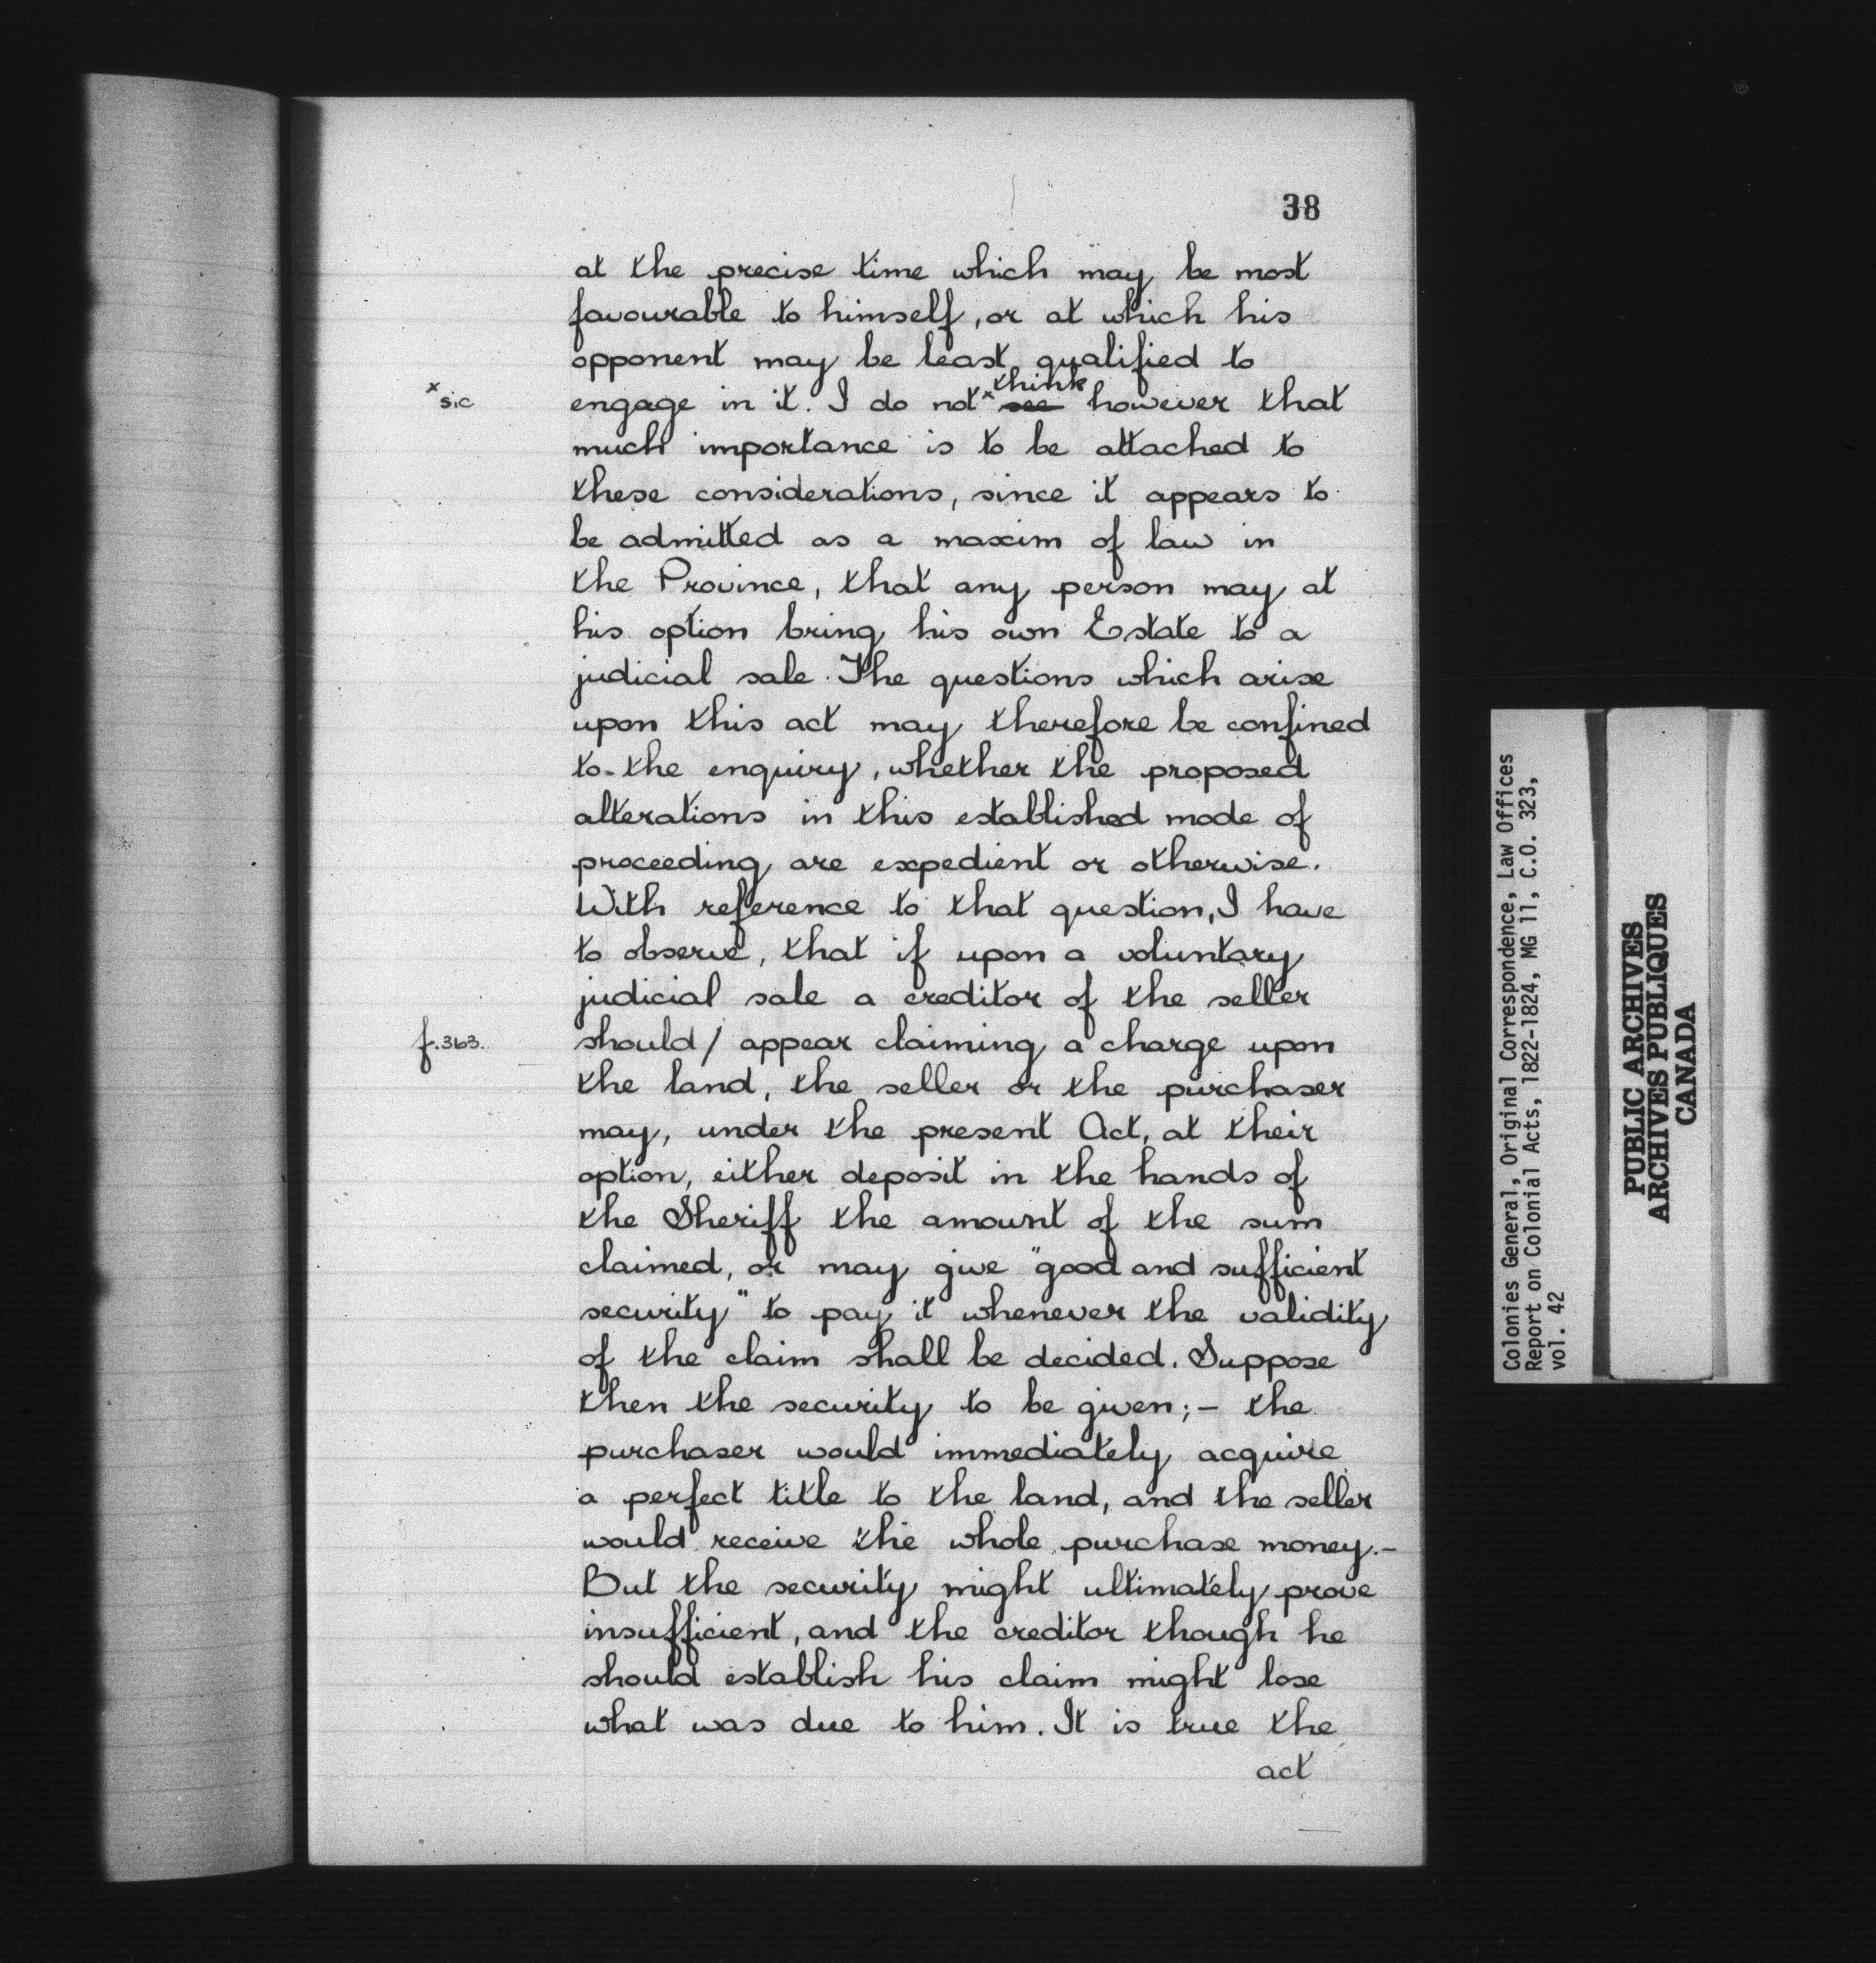 38
at the precise time which may be most
favourable to himself, or at which his
opponent may be least qualified to
x sic
think
engage in it. I do not x see however that
much importance is to be attached to
these considerations, since it appears to
be admitted as a maxim of law in
the Province, that any person may at
his option bring his own Estate to a
judicial sale. The questions which arise
upon this act may therefore be confined
to the enquiry, whether the proposed
alterations in this established mode of
proceeding are expedient or otherwise.
With reference to that question, I have
to observe, that if upon a voluntary
judicial sale a creditor of the seller
f.363.
should / appear claiming a charge upon
the land, the seller or the purchaser
may, under the present Act, at their
option, either deposit in the hands of
the Sheriff the amount of the sum
claimed, or may give "good and sufficient
security" to pay it whenever the validity
of the claim shall be decided. Suppose
then the security to be given; - the
purchaser would immediately acquire
a perfect title to the land, and the seller
would receive the whole purchase money.-
But the security might ultimately prove
insufficient, and the creditor though he
should establish his claim might lose
what was due to him. It is true the
act
Colonies General, Original Correspondence, Law Offices
Report on Colonial Acts, 1822-1824, MG 11, C.O. 323,
vol. 42
PUBLIC ARCHIVES
ARCHIVES PUBLIQUES
CANADA